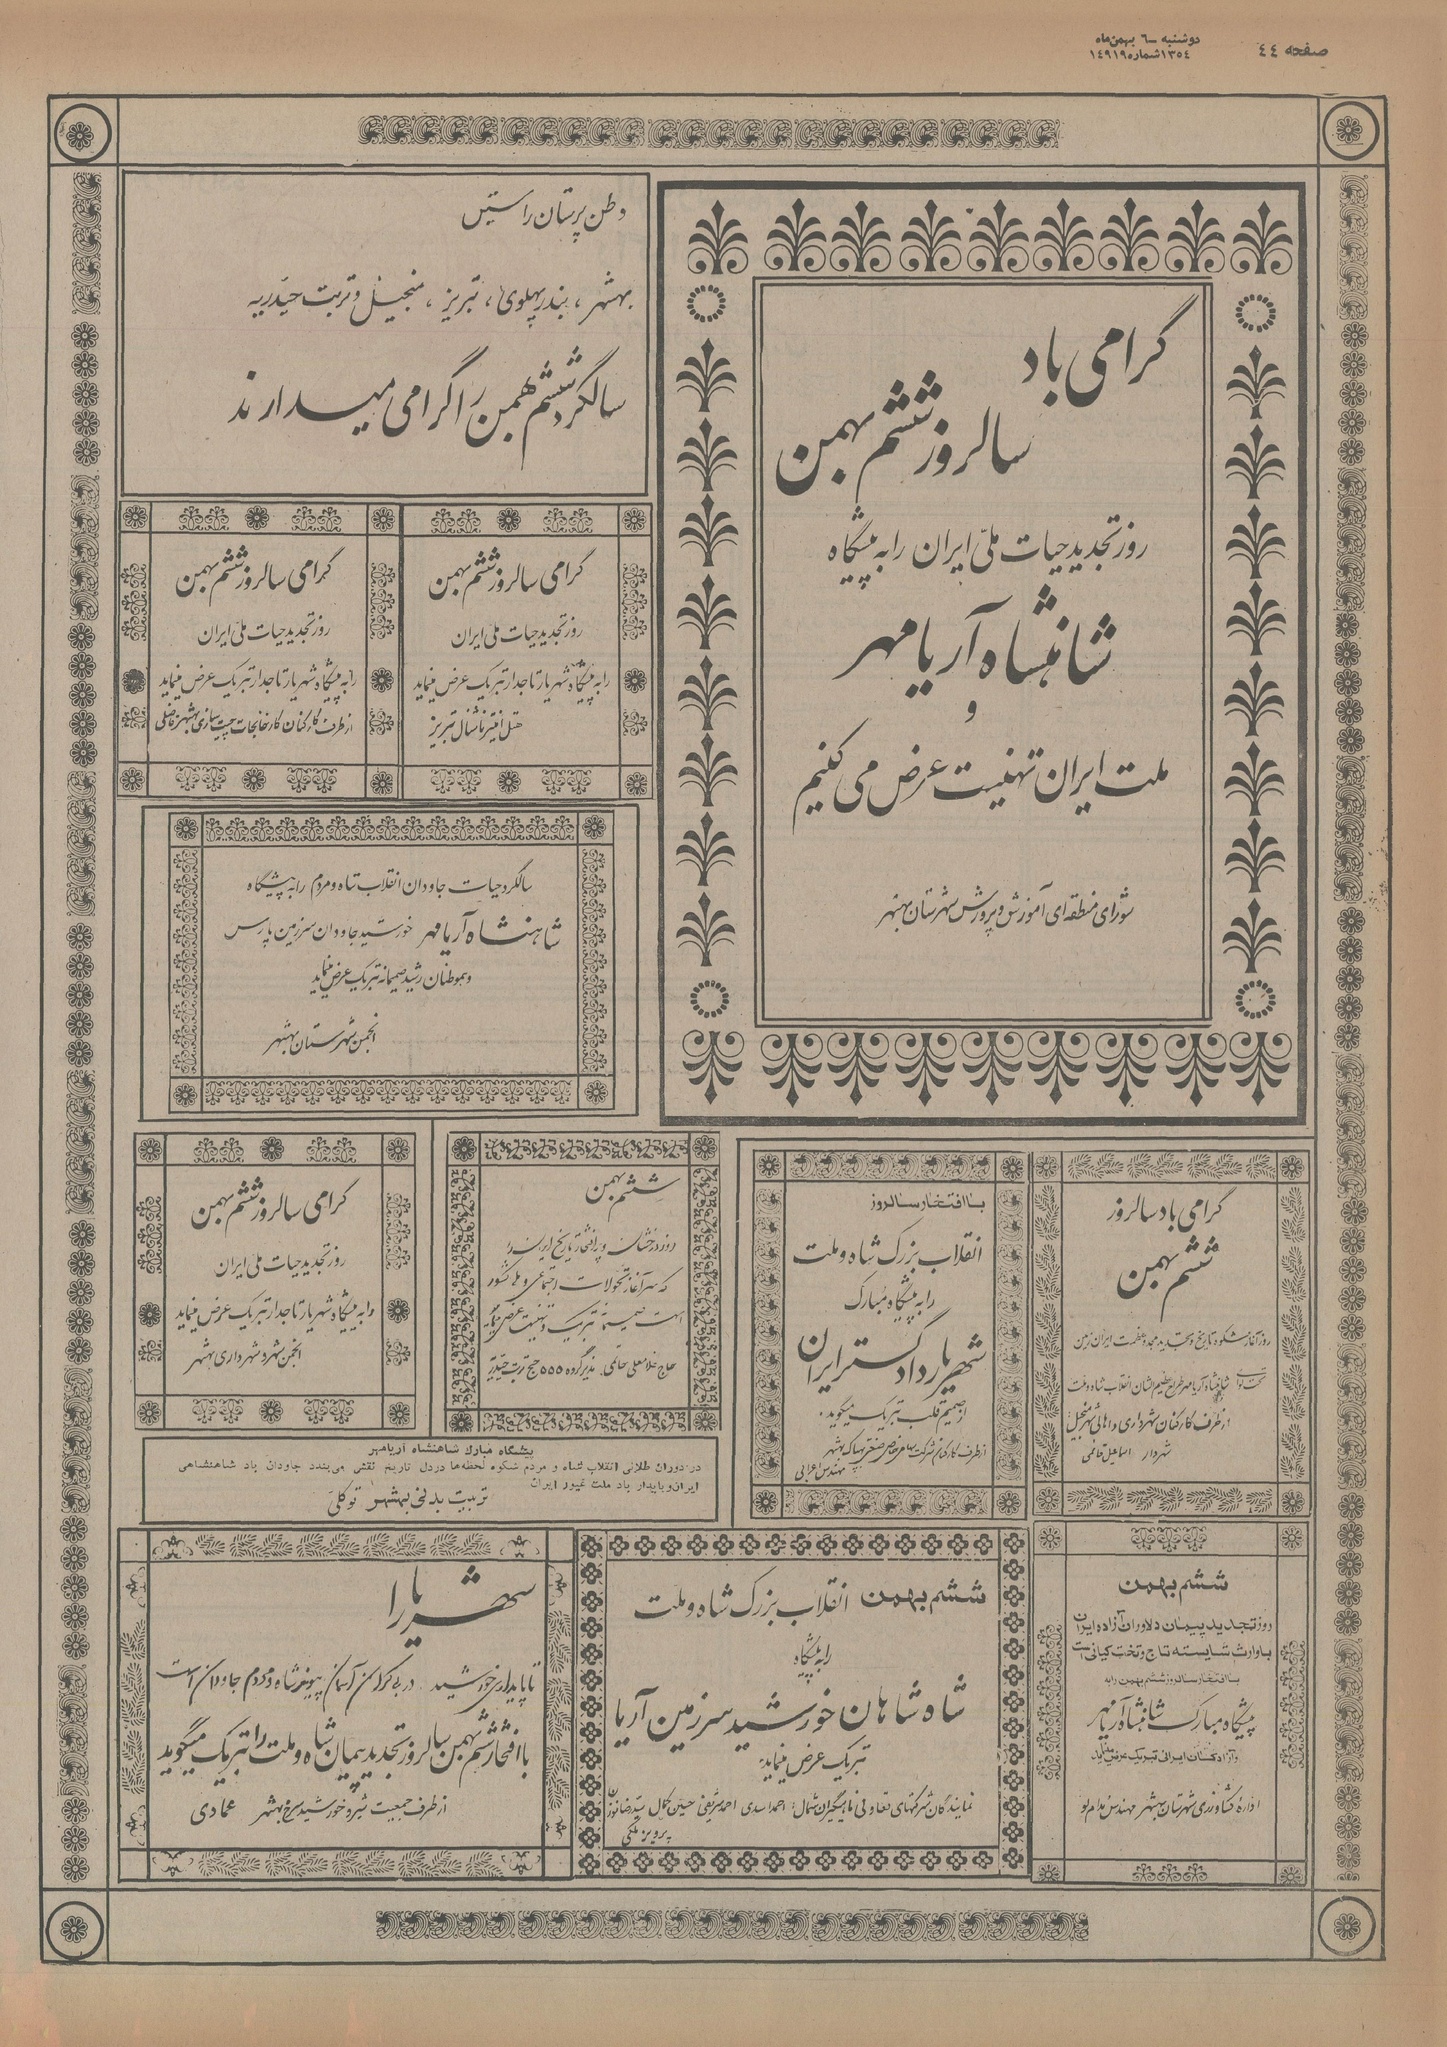 صفحه ٤٤
دوشنبه ـ ٦ بهمن‌ماه
١٣٥٤ شماره ١٤٩١٩
گرامی باد
سالروز ششم بهمن
روز تجدید حیات ملی ایران را به پیشگاه
شاهنشاه آریامهر
و
ملت ایران تهنیت عرض می کنیم
شورای منطقه‌ای آموزش و پرورش شهرستان بهشهر
وطن پرستان راستین
بهشهر ، بندر پهلوی ، تبریز ، منجیل و تربت حیدریه
سالگرد ششم بهمن را گرامی میدارند
گرامی سالروز ششم بهمن
روز تجدید حیات ملی ایران
را به پیشگاه شهریار تاجدار تبریک عرض مینماید
هتل اینترناشنال تبریز
گرامی سالروز ششم بهمن
روز تجدید حیات ملی ایران
را به پیشگاه شهریار تاجدار تبریک عرض مینماید
از طرف کارکنان کارخانجات چیت سازی بهشهر فاضلی
سالگرد حیات جاودان انقلاب شاه و مردم را به پیشگاه
شاهنشاه آریامهر خورشید جاودان سرزمین پارس
و هموطنان رشید صمیمانه تبریک عرض مینماید
انجمن شهرستان بهشهر
گرامی باد سالروز
ششم بهمن
روز آغاز شکوه تاریخ و تجدید مجد و عظمت ایران زمین
تحت لوای شاهنشاه آریامهر طراح عظیم الشان انقلاب شاه و ملت
از طرف کارکنان شهرداری و اهالی شهر منجیل
شهردار اسماعیل قائمی
با افتخار سالروز
انقلاب بزرگ شاه و ملت
را به پیشگاه مبارک
شهریار دادگستر ایران
از صمیم قلب تبریک میگوید.
از طرف کارکنان شرکت سهامی خاص صنعتی بهپاک بهشهر
مهندس اعرابی
ششم بهمن
روز درخشان و پر افتخار تاریخ ایران را
که سرآغاز تحولات اجتماعی و ملی کشور
است صمیمانه تبریک و تهنیت عرض مینماید
حاج غلامعلی حاتمی مدیر گروه ۵۵۵ حج تربت حیدریه
گرامی سالروز ششم بهمن
روز تجدید حیات ملی ایران
را به پیشگاه شهریار تاجدار تبریک عرض مینماید
انجمن شهر و شهرداری بهشهر
پیشگاه مبارک شاهنشاه آریامهر
در دوران طلائی انقلاب شاه و مردم شکوه لحظه‌ها در دل تاریخ نقش می‌بندد جاودان باد شاهنشاهی
ایران و پایدار باد ملت غیور ایران
تربیت بدنی بهشهر توکلی
ششم بهمن
روز تجدید پیمان دلاوران آزاده ایران
با وارث شایسته تاج و تخت کیانی است
با افتخار سالروز ششم بهمن را به
پیشگاه مبارک شاهنشاه آریامهر
و آزادگان ایرانی تبریک عرض مینماید
اداره کشاورزی شهرستان بهشهر مهندس
ششم بهمن انقلاب بزرگ شاه و ملت
را به پیشگاه
شاه شاهان خورشید سرزمین آریا
تبریک عرض مینماید.
نمایندگان شرکتهای تعاونی ماهیگیران شمال: احمد اسدی احمد شریفی حسین کمال سید رضا نوران
پرویز ملکی
شهریارا
تا پایداری خورشید در بیکران آسمان پیوند شاه و مردم جاودان است
با افتخار ششم بهمن سالروز تجدید پیمان شاه و ملت را تبریک میگوید
از طرف جمعیت شیر و خورشید سرخ بهشهر عمادی